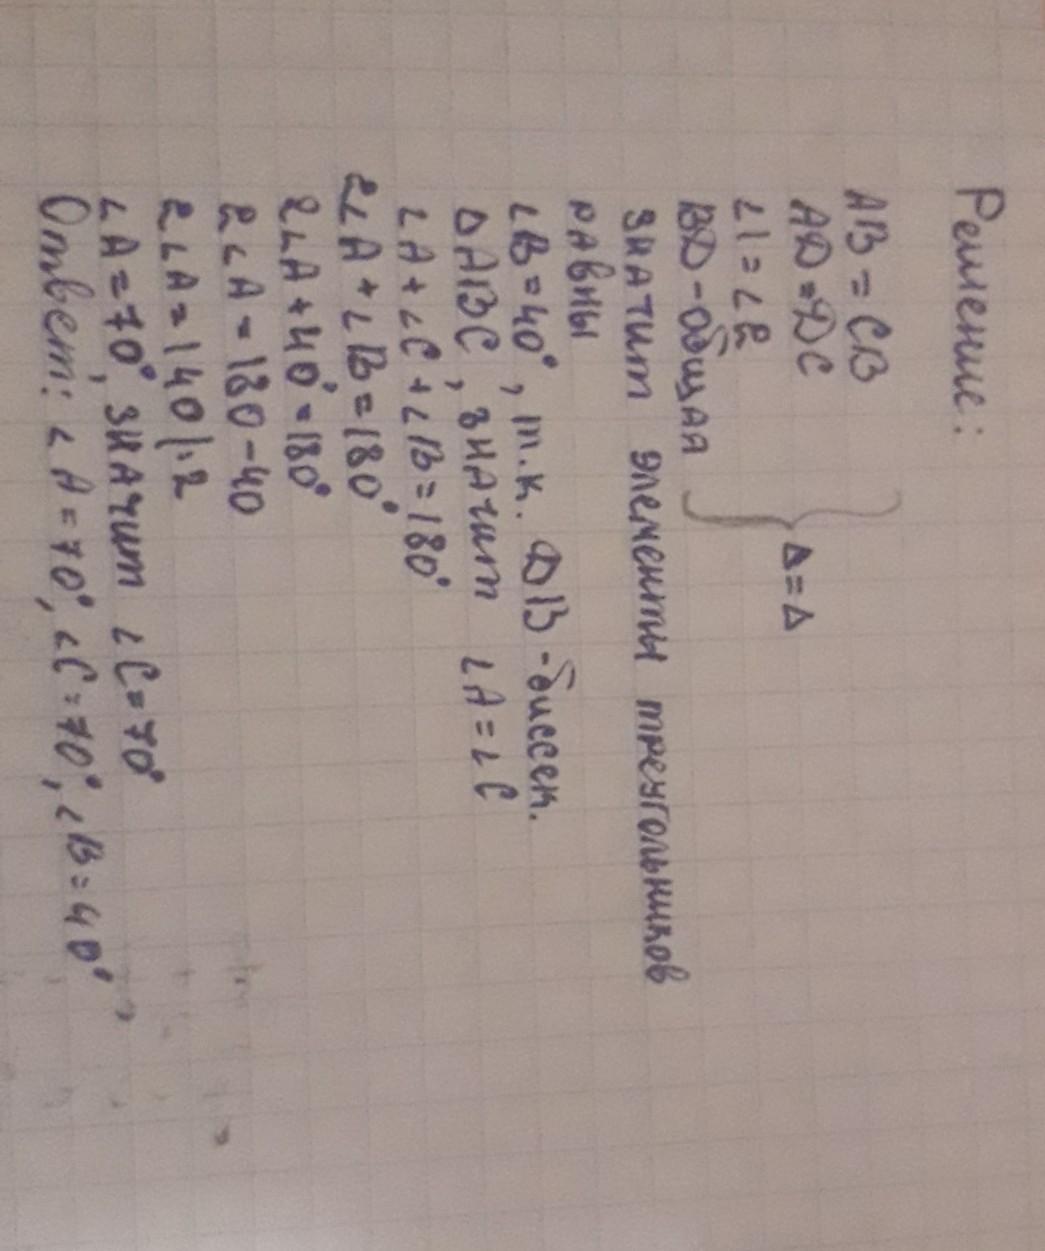 Решение:
AB = CB
AD = DC
∠1 = ∠2
BD - общая
} Δ = Δ
значит элементы треугольников
равны
∠B = 40°, т.к. DB - биссек.
ΔABC, значит ∠A = ∠C
∠A + ∠C + ∠B = 180°
2∠A + ∠B = 180°
2∠A + 40° = 180°
2∠A = 180 - 40
2∠A = 140 |:2
∠A = 70°, значит ∠C = 70°
Ответ: ∠A = 70°, ∠C = 70°, ∠B = 40°